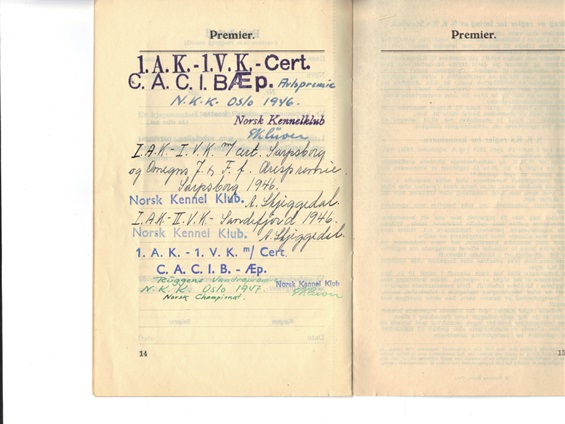 Premier.
1. A.K. - 1. V. K. - Cert.
C. A. C. I. B. Æp. Avlspremie
N. K. K. Oslo 1946.
Norsk Kennelklub
I.A.K. - I.V.K. m/cert. Sarpsborg
og Omegns J. & F. f. Ærespremie.
Sarpsborg 1946.
Norsk Kennel Klub. A. Skjeggedal.
I.A.K. - II.V.K. - Sandefjord 1946.
Norsk Kennel Klub. A. Skjeggedal.
1. A. K. - 1. V. K. m/ Cert.
C. A. C. I. B. - Æp.
Norsk Kennel Klub
N. K. K. Oslo 1947.
Norsk Championat.
14
Premier.
15